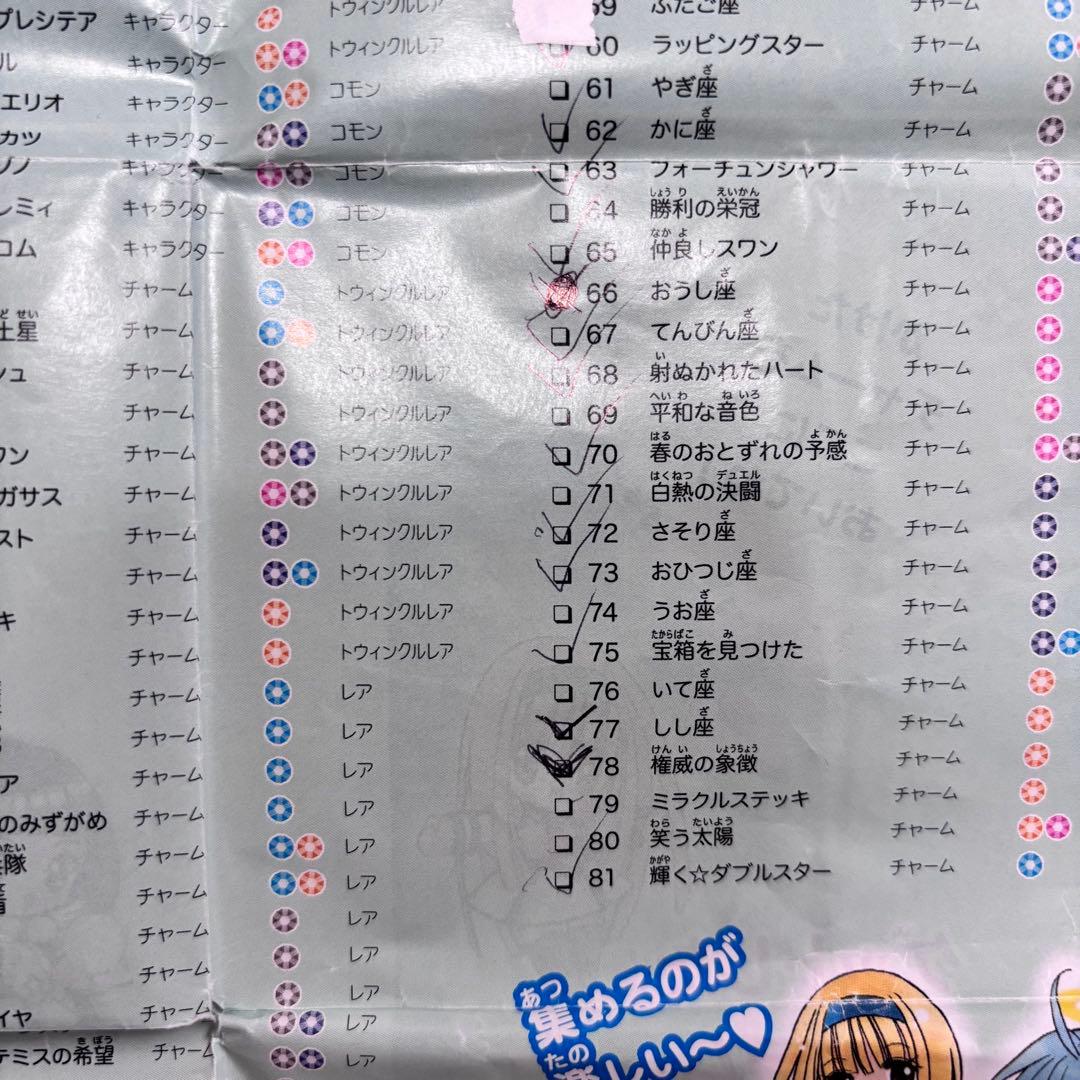 プレシテア キャラクター トゥインクルレア
ル キャラクター トゥインクルレア
エリオ キャラクター コモン
カツ キャラクター コモン
キャラクター コモン
レミィ キャラクター コモン
コム キャラクター コモン
チャーム トゥインクルレア
土星 チャーム トゥインクルレア
ど せい
シュ チャーム トゥインクルレア
チャーム トゥインクルレア
ワン チャーム トゥインクルレア
ガサス チャーム トゥインクルレア
スト チャーム トゥインクルレア
チャーム トゥインクルレア
キ チャーム トゥインクルレア
チャーム トゥインクルレア
チャーム レア
チャーム レア
ア チャーム レア
のみずがめ チャーム レア
隊 チャーム レア
チャーム レア
チャーム レア
チャーム レア
チャーム レア
イヤ チャーム レア
テミスの希望 チャーム レア
き ぼう
59 ふたご座 チャーム
60 ラッピングスター チャーム
61 やぎ座 チャーム
ざ
62 かに座 チャーム
ざ
63 フォーチュンシャワー チャーム
64 勝利の栄冠 チャーム
しょう り えいかん
65 仲良しスワン チャーム
なか よ
66 おうし座 チャーム
ざ
67 てんびん座 チャーム
ざ
68 射ぬかれたハート チャーム
い
69 平和な音色 チャーム
へい わ ね いろ
70 春のおとずれの予感 チャーム
はる よ かん
71 白熱の決闘 チャーム
はくねつ デュエル
72 さそり座 チャーム
ざ
73 おひつじ座 チャーム
ざ
74 うお座 チャーム
ざ
75 宝箱を見つけた チャーム
たからばこ み
76 いて座 チャーム
ざ
77 しし座 チャーム
ざ
78 権威の象徴 チャーム
けん い しょうちょう
79 ミラクルステッキ チャーム
80 笑う太陽 チャーム
わら たいよう
81 輝く☆ダブルスター チャーム
かがや
集めるのが
あつ
楽しい〜♡
たの